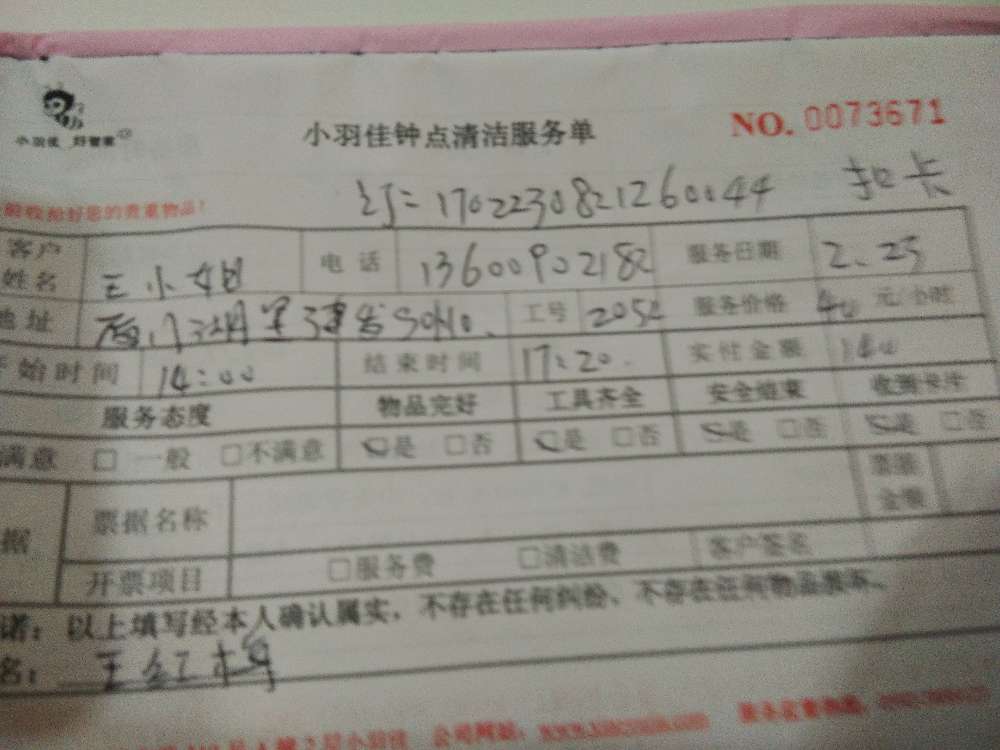 小羽佳 好管家
小羽佳钟点清洁服务单
NO. 0073671
1702230821260044 扣卡
验收和好您的贵重物品!
客户姓名 王小姐 电话 13600902182 服务日期 2.23
地址 SOHO. 工号 2052 服务价格 40 元/小时
开始时间 14:00 结束时间 17:20 实付金额 140
服务态度 物品完好 工具齐全 安全结束 收测卡片
满意 □ 一般 □不满意 是 □否 是 □否 是 □否 是 □否
票据名称 票据金额
开票项目 □服务费 □清洁费 客户签名
诺:以上填写经本人确认属实,不存在任何纠纷、不存在任何物品损坏。
名:王红梅
小羽佳 公司网站: